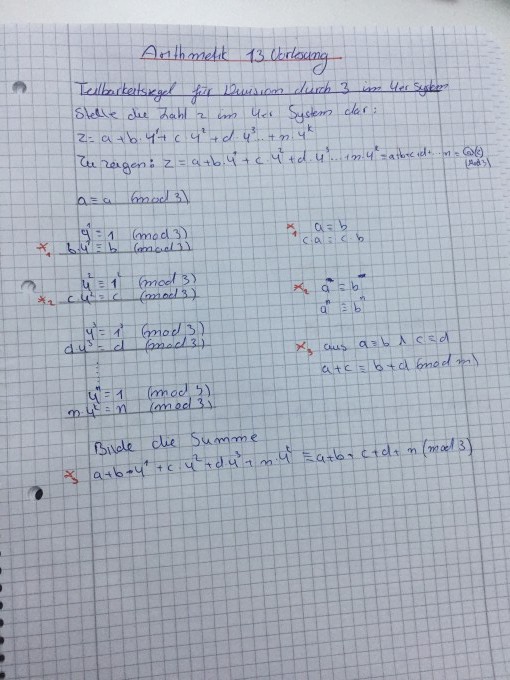 Arithmetik 13 Vorlesung
Teilbarkeitsregel für Division durch 3 im 4er System
Stelle die Zahl z im 4er System dar:
z = a + b·4¹ + c·4² + d·4³ ... + n·4ᵏ
Zu zeigen: z = a + b·4¹ + c·4² + d·4³ ... + n·4ᵏ = a+b+c+d+ ·· n = (mod 3)
a = a (mod 3)
4¹ = 1 (mod 3)
*₁ b·4¹ = b (mod 3)
*₁ a = b
c·a = c·b
4² = 1² (mod 3)
*₂ c·4² = c (mod 3)
*₂ a = b
aⁿ = bⁿ
4³ = 1³ (mod 3)
d·4³ = d (mod 3)
*₃ aus a = b ∧ c = d
a + c = b + d (mod m)
⋮
4ⁿ = 1 (mod 3)
n·4ᵏ = n (mod 3)
Bilde die Summe
*₃ a + b·4¹ + c·4² + d·4³ + n·4ᵏ ≡ a + b + c + d + n (mod 3)